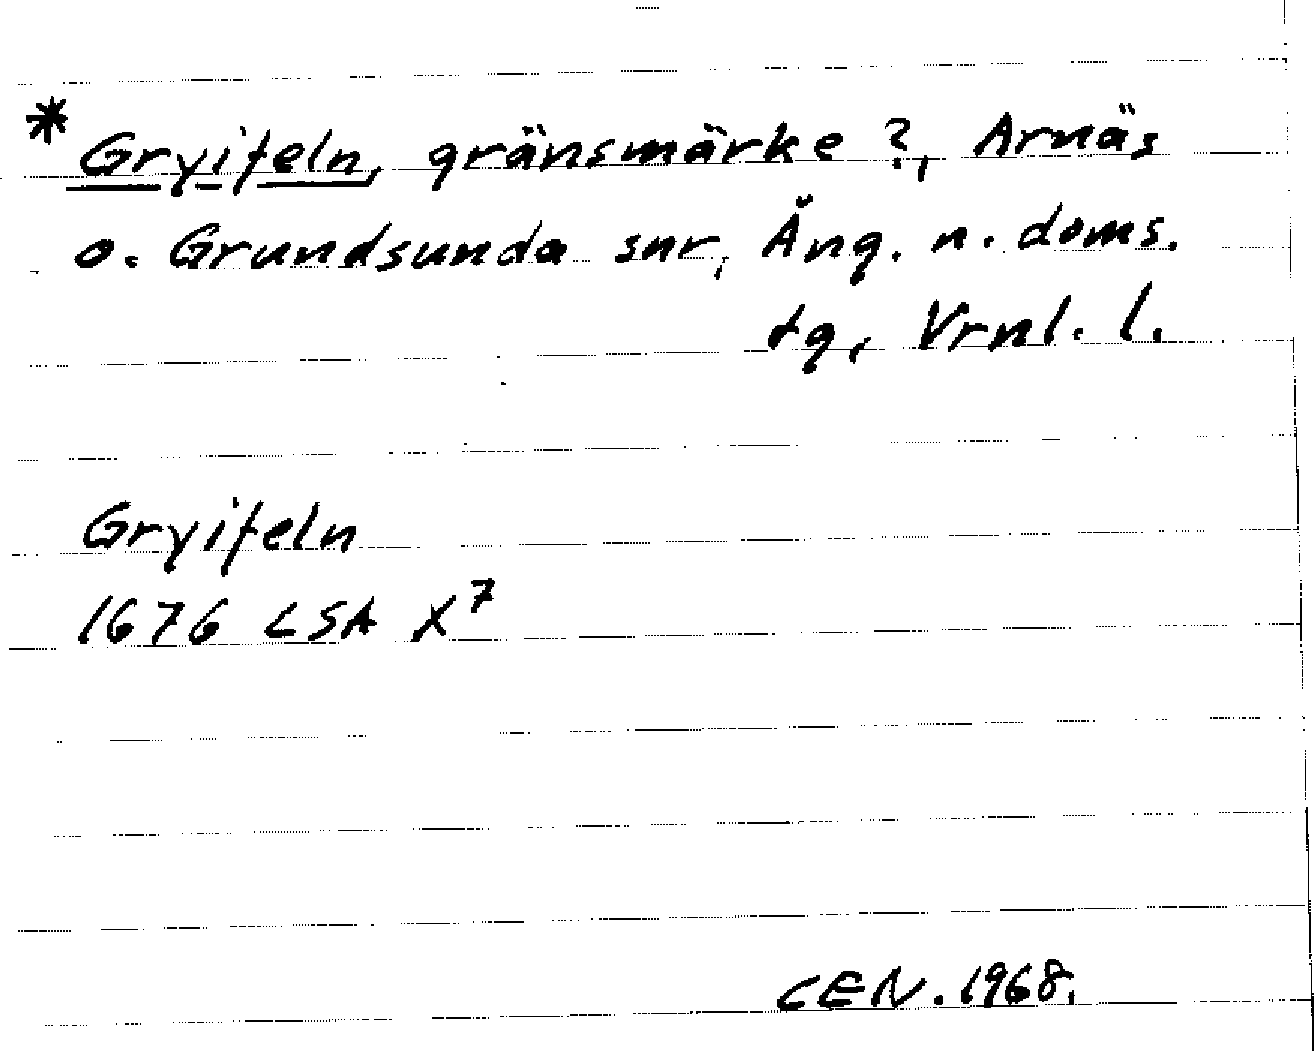 * Gryifeln, gränsmärke ?, Arnäs
o. Grundsunda snr, Äng. n. doms.
tg, Vrnl. l.
Gryifeln
1676 LSA X⁷
CEN. 1968.